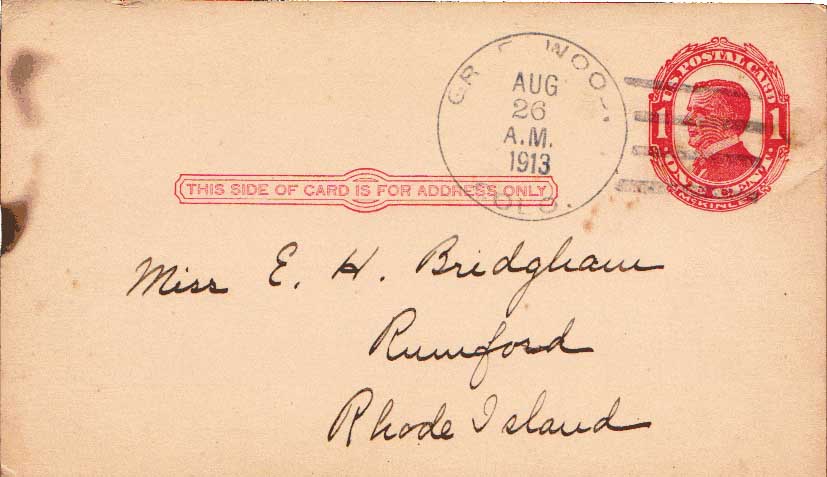 AUG
26
A.M.
1913
U.S. POSTAL CARD
1 1
ONE CENT
McKINLEY
THIS SIDE OF CARD IS FOR ADDRESS ONLY
Miss E. H. Bridgham
Rumford
Rhode Island